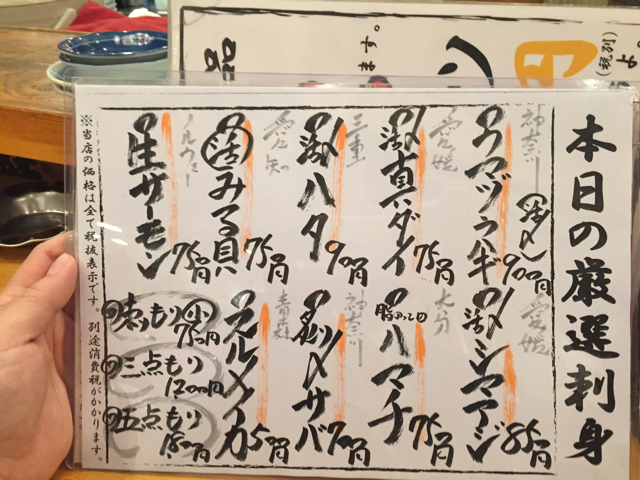 本日の厳選刺身
神奈川
ウマヅラハギ
活〆
900円
愛媛
活〆シマアジ
850円
愛媛
活〆真ダイ
750円
大分
脂のってる
ハマチ
750円
三重
活〆ハタ
900円
神奈川
炙〆サバ
700円
愛知
活みる貝
750円
青森
スルメイカ
500円
ノルウェー
生サーモン
750円
三点もり
1200円
五点もり
1800円
※当店の価格は全て税抜表示です。別途消費税がかかります。